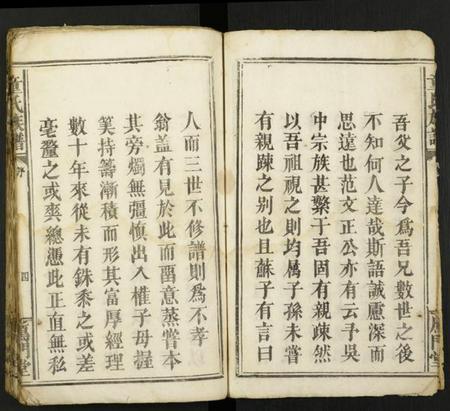 吾父之子今爲吾兄數世之後
不知何人達哉斯語誠慮深而
思遠也范文正公亦有云予吳
中宗族甚繁于吾固有親疎然
以吾祖視之則均属子孫未嘗
有親踈之别也且蘇子有言曰
人而三世不修譜則爲不孝
翁盖有見於此而畱意蒸嘗本
其旁燭無彊慎出入權子母握
筭持籌漸積而形其富厚經理
數十年來從未有銖黍之或差
毫釐之或爽總憑此正直無私
童氏族譜
序
四
雁門堂